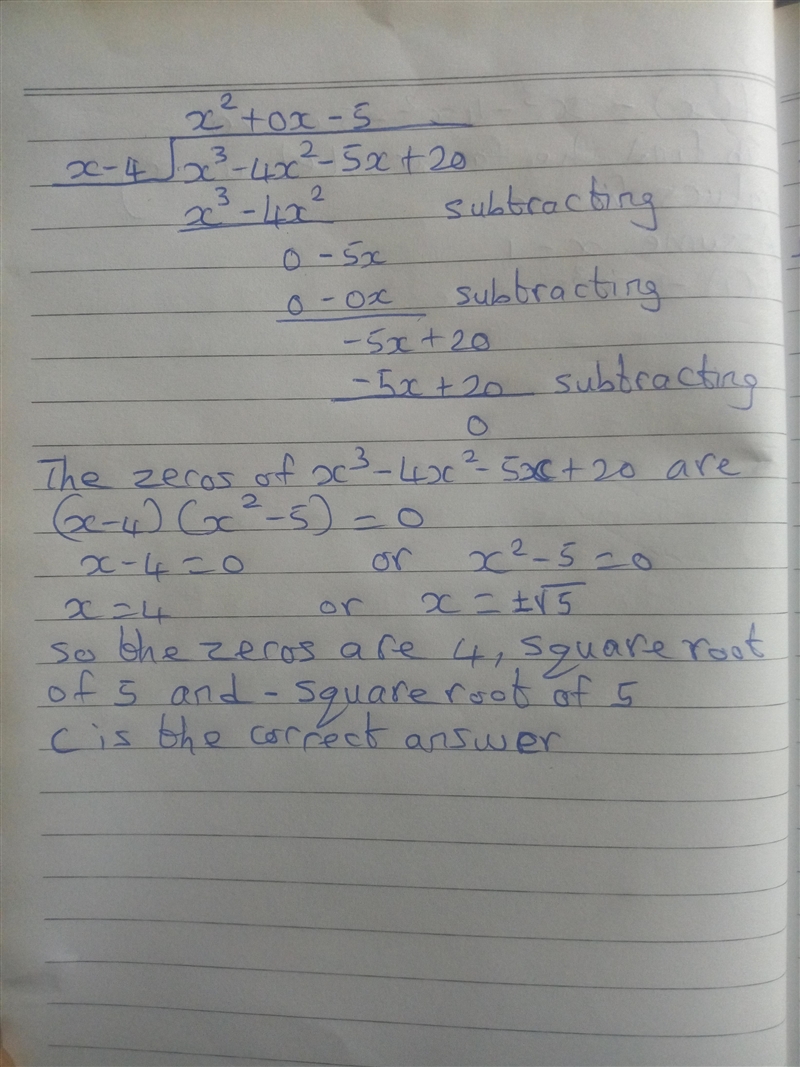 x² + 0x - 5
x - 4 √ x³ - 4x² - 5x + 20
x³ - 4x² subtracting
0 - 5x
0 - 0x subtracting
-5x + 20
-5x + 20 subtracting
0
The zeros of x³ - 4x² - 5x + 20 are
(x - 4) (x² - 5) = 0
x - 4 = 0 or x² - 5 = 0
x = 4 or x = ±√5
so the zeros are 4, square root
of 5 and - square root of 5
C is the correct answer